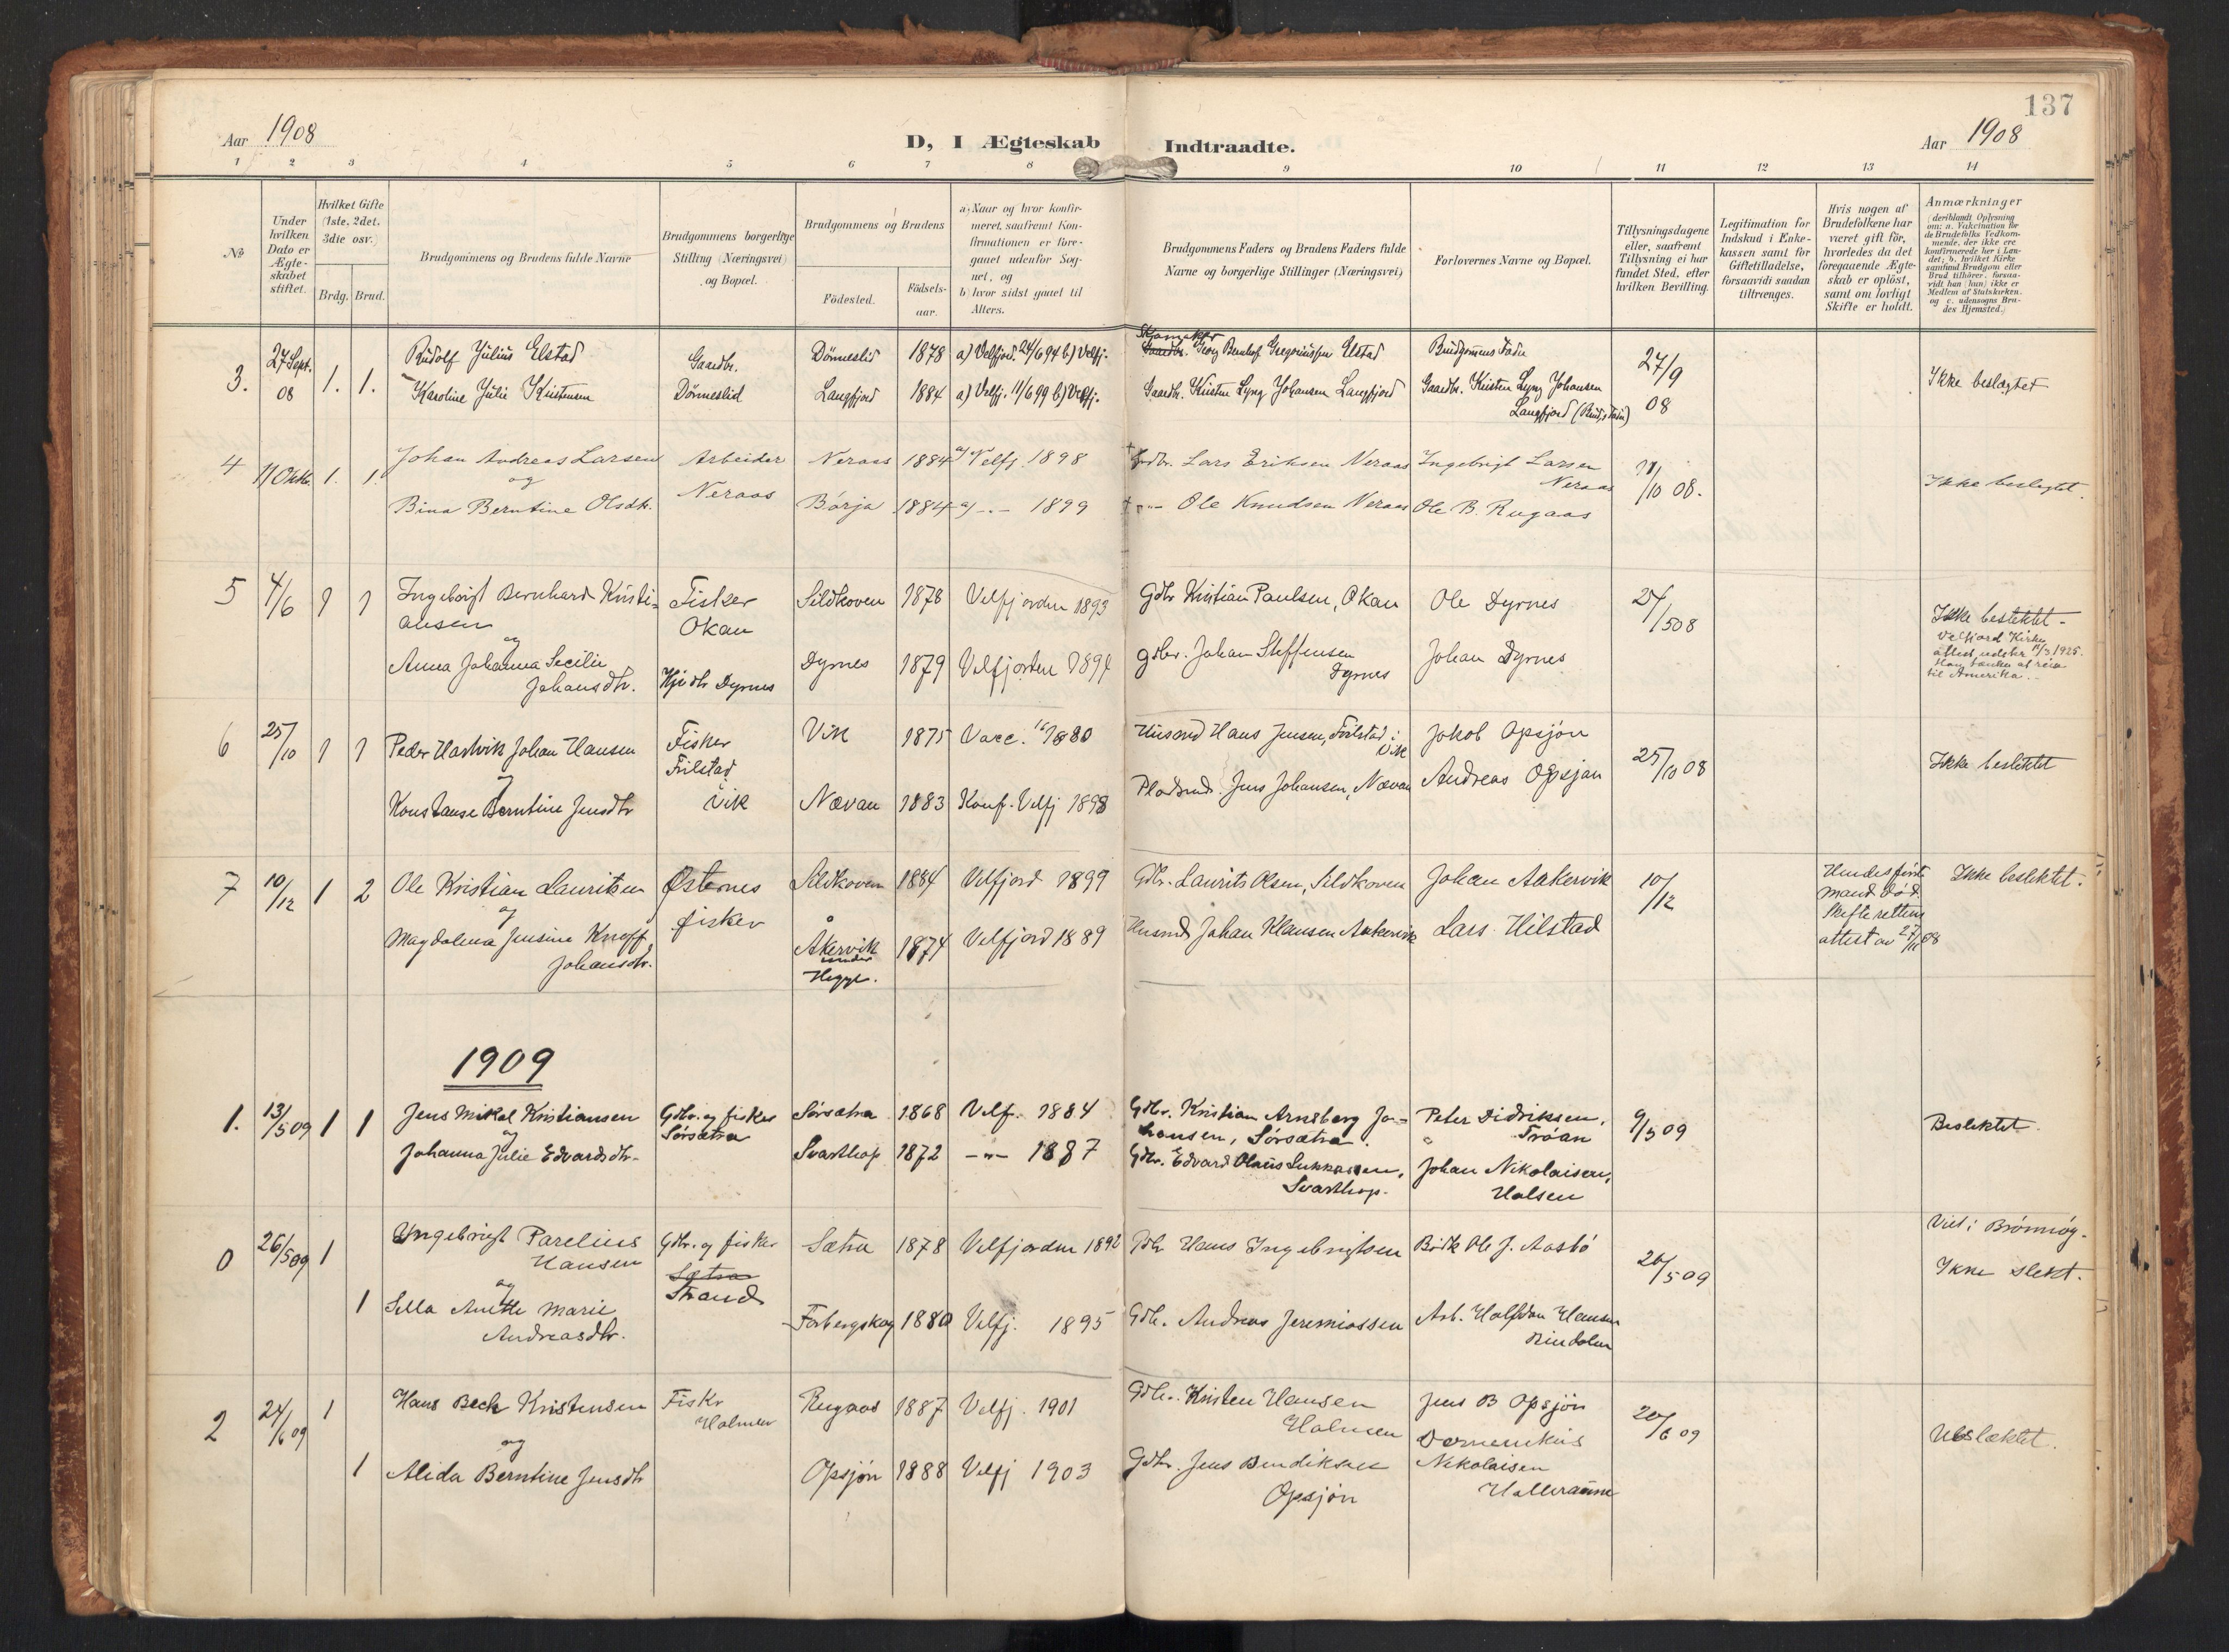 137
Aar 1908
D, I Ægteskab Indtraadte.
Aar 1908
1 2 3 4 5 6 7 8 9 10 11 12 13 14
№
Under hvilken Dato er Ægteskabet stiftet.
Hvilket Gifte (1ste, 2det. 3die osv.)
Brdg. Brud.
Brudgommens og Brudens fulde Navne
Brudgommens borgerlige Stilling (Næringsvei) og Bopæl.
Brudgommens og Brudens
Födested.
Födselsaar.
a) Naar og hvor konfirmeret, saafremt Konfirmationen er foregaaet udenfor Sognet, og
b) hvor sidst gaaet til Alters.
Brudgommens Faders og Brudens Faders fulde Navne og borgerlige Stillinger (Næringsvei)
Forlovernes Navne og Bopæl.
Tillysningsdagene eller, saafremt Tillysning ei har fundet Sted, efter hvilken Bevilling.
Legitimation for Indskud i Enkekassen samt for Giftetilladelse, forsaavidt saadan tiltrænges.
Hvis nogen af Brudefolkene har været gift før, hvorledes da det foregaaende Ægteskab er oplöst, samt om lovligt Skifte er holdt.
Anmærkninger (deriblandt Oplysning om: a. Vakcination for de Brudefolks Vedkommende, der ikke ere konfirmerede her i Landet; b. hvilket Kirkesamfund Brudgom eller Brud tilhörer, forsaavidt han (hun) ikke er Medlem af Statskirken. og c. udensogns Brudes Hjemsted.)
3. 27 Sept. 08 1. 1.
Rudolf Julius Elstad
Karoline Julie Kristensen
Gaardbr. Dönneslid
Dönneslid 1878 a) Velfjord. 24/6 94 b) Velfj.
Langfjord 1884 a) Velfj. 11/6 99 b) Velfj.
Skomaker
Gaardbr. Georg Bernhof Gregoriussen Elstad
Gaardbr. Kristen Lyng Johansen Langfjord
Brudgomens Fader
Gaardbr. Kristen Lyng Johansen
Langfjord
27/9 08
Ikke beslægtet
4 11 Oktb. 1. 1.
Johan Andreas Larsen
og
Bina Berntine Olsdtr.
Arbeider
Neraas
Neraas 1884 a) Velfj. 1898
Börja 1884 a) -.- 1899
† Gdbr. Lars Eriksen Neraas
† -"- Ole Knudsen Neraas
Ingebrigt Larsen
Neraas
Ole B. Rugaas
11/10 08.
Ikke beslegtet.
5 4/6 1 1
Ingebrigt Bernhard Kristi=
ansen
og
Anna Johanna Secilie
Johansdtr.
Fisker
Okan
Dyrnes
Sildhoven 1878 Velfjorden 1893
Dyrnes 1879 Velfjorden 1894
Gdbr Kristian Paulsen, Okan
gdbr. Johan Steffensen
Dyrnes
Ole Dyrnes
Johan Dyrnes
24/5 08
Ikke beslektet -
Velfjord Kirke
attest udstr 14/3 1925.
Han tænker at reise
til Amerika.
6 25/10 1 1
Peder Hartvik Johan Hansen
og
Konstanse Berntine Jensdtr
Fisker
Frilstad
Vik
Vik 1875 Vacc. 16/9 80
Nævan 1883 Konf. Velfj 1898
Husmd Hans Jensen, Frilstad i
Vik
Pladsmd. Jens Johansen, Nævan
Jakob Opsjön
Andreas Opsjøn
25/10 08
Ikke beslektet
7 10/12 1 2
Ole Kristian Lauritsen
og
Magdalena Jensine Knoff
Johansdtr.
Østernes
fisker
Sildhoven 1884 Velfjord 1899
Åkervik
under
Hegge. 1874 Velfjord 1889
Gdbr. Laurits Olsen, Sildhoven
Husmd Johan Klausen Aakervik
Johan Aakervik
Lars Hilstad
10/12
Hendes første
mand død
Skifterettens
attest av 27/11 08
Ikke beslektet.
1909
1. 13/5 09 1 1
Jens Mikal Kristiansen
og
Johanna Julie Edvardsdtr.
Gdbr. og fisker
Sörsætra
Sörsætra 1868 Velf. 1884
Svarthop 1872 -"- 1887
Gdbr. Kristian Arnsberg Jo=
hansen, Sörsætra.
Gdbr. Edvard Olaus Lukkassen,
Svarthop.
Peter Didriksen,
" Tröan
Johan Nikolaisen,
Halsen
9/5 09
Beslektet
0 26/5 09 1
Ingebrigt Parelius
Hansen
og
1 Sella Anette Marie
Andreasdtr.
Gdbr. og fisker
Sætra
Strand
Sætra 1878 Velfjorden 1892
Forbergskog 1880 Velfj. 1895
Gdbr Hans Ingebrigtsen
Gdbr. Andreas Jeremiassen
Ole J. Aasbö
Arb. Halfdan Hansen
Rindalen
26/5 09
Viet i Brönnöy.
Ikke slekt.
2 24/6 09 1
Hans Beck Kristensen
og
1 Alida Berntine Jensdtr
Fisker
Holmen
Rugaas 1887 Velfj. 1901
Opsjön 1888 Velfj 1903
Gdbr. Kristen Hansen
Holmsen
Gdbr. Jens Bendiksen
Opsjön
Jens B Opsjön
Domenikus
Nikolaisen
20/6 09
Ubslektet.